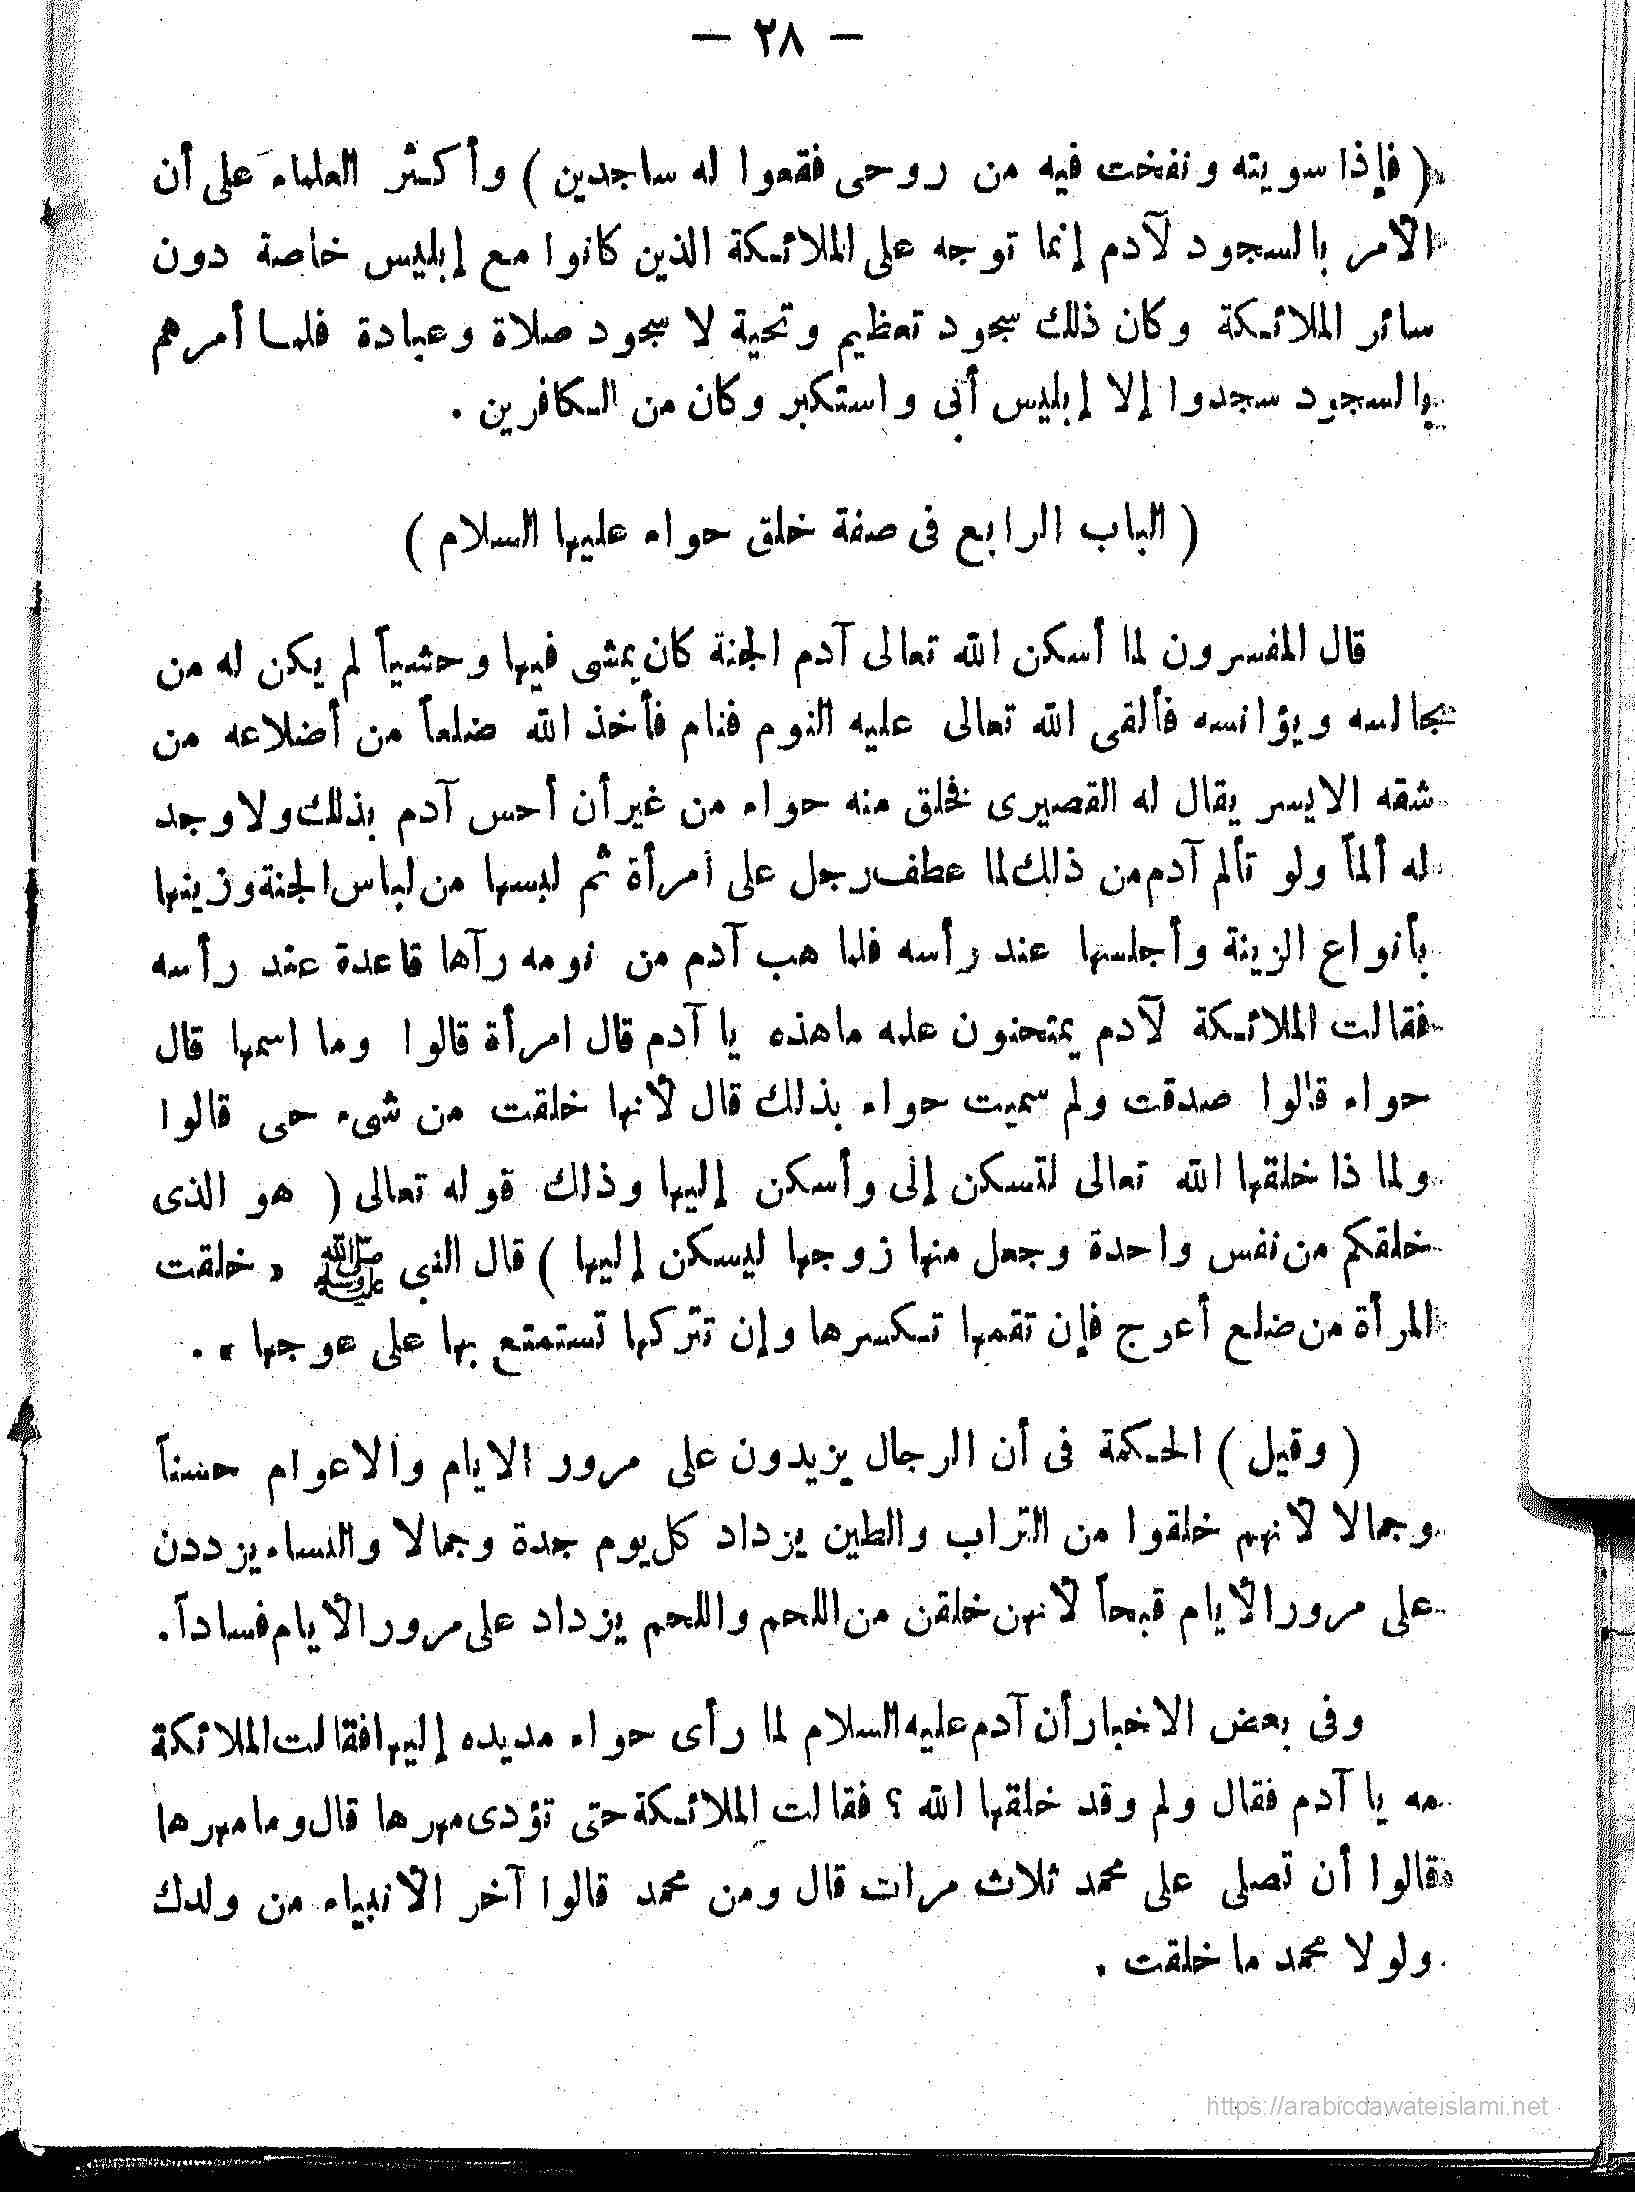 — ٢٨ —
( فإذا سويته ونفخت فيه من روحى فقعوا له ساجدين ) وأكثر العلماء على أن
الأمر بالسجود لآدم إنما توجه على الملائكة الذين كانوا مع إبليس خاصة دون
سائر الملائكة وكان ذلك سجود تعظيم وتحية لا سجود صلاة وعبادة فلما أمرهم
بالسجود سجدوا إلا إبليس أبى واستكبر وكان من الكافرين .
( الباب الرابع فى صفة خلق حواء عليها السلام )
قال المفسرون لما أسكن الله تعالى آدم الجنة كان يمشى فيها وحشياً لم يكن له من
يجالسه ويؤانسه فألقى الله تعالى عليه النوم فنام فأخذ الله ضلعاً من أضلاعه من
شقه الايسر يقال له القصيرى فخلق منه حواء من غير أن أحس آدم بذلك ولا وجد
له ألماً ولو تألم آدم من ذلك لما عطف رجل على امرأة ثم لبسها من لباس الجنة وزينها
بأنواع الزينة وأجلسها عند رأسه فلما هب آدم من نومه رآها قاعدة عند رأسه
فقالت الملائكة لآدم يمتحنون علمه ما هذه يا آدم قال امرأة قالوا وما اسمها قال
حواء قالوا صدقت ولم سميت حواء بذلك قال لأنها خلقت من شىء حى قالوا
ولما ذا خلقها الله تعالى لتسكن إلى وأسكن إليها وذلك قوله تعالى ( هو الذى
خلقكم من نفس واحدة وجعل منها زوجها ليسكن إليها ) قال النبى ﷺ « خلقت
المرأة من ضلع أعوج فإن تقمها تكسرها وإن تتركها تستمتع بها على عوجها » .
( وقيل ) الحكمة فى أن الرجال يزيدون على مرور الايام والاعوام حسناً
وجمالا لأنهم خلقوا من التراب والطين يزداد كل يوم جدة وجمالا والنساء يزددن
على مرور الأيام قبحاً لأنهن خلقن من اللحم واللحم يزداد على مرور الأيام فساداً .
وفى بعض الاخبار أن آدم عليه السلام لما رأى حواء مد يده إليها فقالت الملائكة
مه يا آدم فقال ولم وقد خلقها الله ؟ فقالت الملائكة حتى تؤدى مهرها قال وما مهرها
قالوا أن تصلى على محمد ثلاث مرات قال ومن محمد قالوا آخر الأنبياء من ولدك
ولولا محمد ما خلقت .
https://arabicdawateislami.net